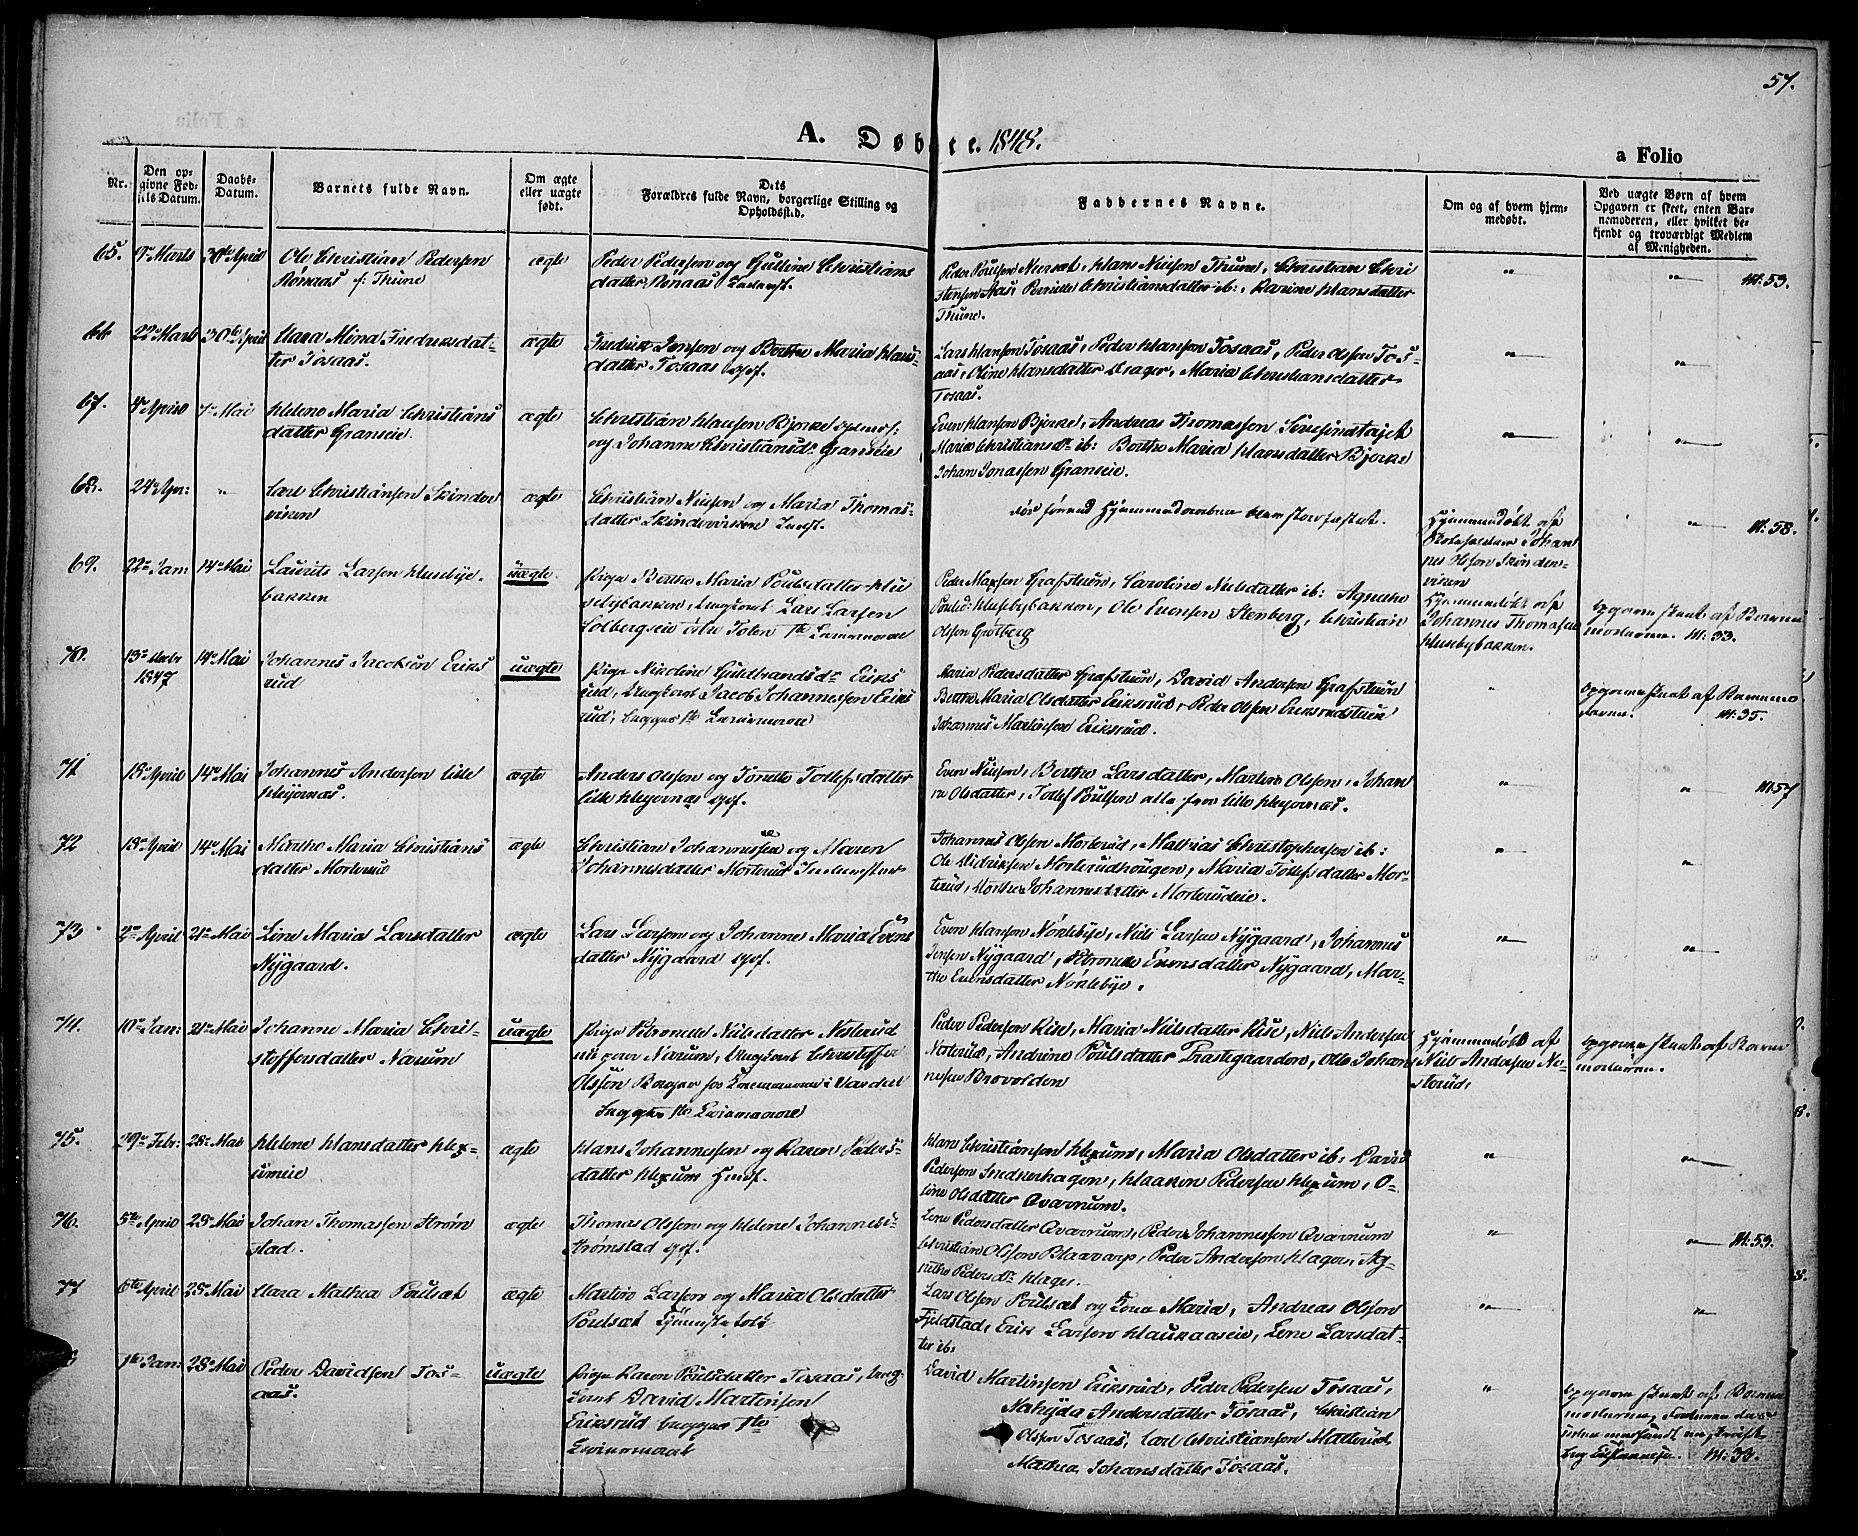 57.
A. Døbte. 1848.
a Folio
Nr.
Den op-
givne Fød-
sels Datum.
Daabs-
Datum.
Barnets fulde Navn.
Om ægte
eller uægte
født.
Dets
Forældres fulde Navn, borgerlige Stilling og
Opholdssted.
Faddernes Navne.
Om og af hvem hjem-
medøbt.
Ved uægte Børn af hvem
Opgaven er skeet, enten Bar-
nemoderen, eller hvilket be-
kjendt og troværdigt Medlem
af Menigheden.
65.
9de Marts
30te April
Ole Christian Pedersen
Rønaas f: Thune
ægte
Peder Pedersen og Gulline Christians
datter Rønaas Inderst.
Peder Poulsen Neersæt, Hans Nielsen Thune, Christian Chri
stensen Aas, Pernille Christiansdatter ib:, Karine Hansdatter
Thune.
"
"
M: 53.
66
22de Marts
30te April
Clara Mina Fredriksdat-
ter Tosaas.
ægte
Fredrik Jensen og Berthe Maria Hans-
datter Tosaas Huusf.
Lars Hansen Tosaas, Peder Hansen Tosaas, Peder Olsen Tos-
aas, Oline Hansdatter Krager, Maria Christiansdatter
Tosaas.
"
"
67.
4de April
7de Mai
Helene Maria Christians
datter Granseie.
ægte
Christian Hansen Bjerke
og Johanne Christiansdr Granseie
Even Hansen Bjerke, Andreas Thomassen
Maria Christiansdr ib: Berthe Maria Hansdatter Bjerke
Johan Jonassen Granseie.
"
"
68.
24de Apr:
"
Carl Christiansen Skinder
viken
ægte
Christian Nielsen og Maria Thomas-
datter Skinderviken Inderst.
døde førend Hjemmedaaben blev stadfæstet.
Hjemmedøbt af
Johan
nes Olsen Skinder-
viken
"
M: 58.
69.
22de Jan:
14de Mai
Laurits Larsen Husebye-
bakken
uægte.
Pige Berthe Maria Poulsdatter Hu
sebybakken, Ungkarl Lars Larsen
Solbergseie østre Toten 1ste Leiermaal
Peder Maxsen Grafstuen, Caroline Nielsdatter ib: Agnethe
Poulsd: Husebybakken, Ole Evensen Stenberg, Christian
Olsen Grotberg
Hjemmedøbt af
Johannes Thomasen
Husebybakken.
Opgaven skeet af Barne
moderen. M: 33.
70.
13de Decbr
1847
14de Mai
Johannes Jacobsen Eriks
rud
uægte
Pige Nikoline Guldbrandsdr Eriks
rud, Ungkarl Jacob Johannessen Eriks
rud, begges 1ste Leiermaal
Maria Pedersdatter Grafstuen, David Andersen Grafstuen
Berthe Maria Olsdatter Eriksrud, Peder Olsen Eriksrudstuen
Johannes Martinsen Eriksrud.
"
Opgaven skeet af Barnemo
deren. M: 35.
71
18de April
14de Mai
Johannes Andersen lille
Heiernæs.
ægte
Anders Olsen og Tonette Tollefsdatter
lille Heiernæs Huusf.
Even Nielsen, Berthe Larsdatter, Martin Olsen, Johan
ne Olsdatter, Tollef Poulsen alle fra lille Heiernæs.
"
"
M: 57
72
18de April
14de Mai
Marthe Maria Christians
datter Morterud
ægte
Christian Johannesen og Maren
Johannesdatter Morterud Inderster
Johannes Olsen Morterud, Mathias Christophersen ib:
Ole Didriksen Morterudhougen, Maria Tollefsdatter Mor-
terud, Marthe Johannesdatter Morterudeie.
"
"
73
2de April
21de Mai
Line Maria Larsdatter
Nygaard.
ægte
Lars Larsen og Johanne Maria Evens
datter Nygaard Huusf.
Even Hansen Nørlebye, Niels Larsen Nygaard, Johannes
Jensen Nygaard, Petronelle Evensdatter Nygaard, Mar-
the Evensdatter Nørlebye.
"
"
74.
10de Jan:
21de Mai
Johanne Maria Chri-
stoffersdatter Narum
uægte
Pige Petronelle Nielsdatter Nesterud
Narum, Ungkarl Christoffer
Olsen Borger for i Vardal
Begges 1ste Leiermaal
Peder Pedersen Rise, Maria Nielsdatter Rise, Niels Andersen
Nesterud, Andrine Poulsdatter Præstegaarden, Ole Johan
nesen Brovolden
Hjemmedøbt af
Niels Andersen Ne-
sterud.
Opgaven skeet af Barne
moderen.
75.
29de Febr:
28de Mai
Helene Hansdatter Hex-
umeie
ægte
Hans Johannessen og Karen Peders-
datter Hexum Huusf.
Hans Christiansen Hexum, Maria Olsdatter ib. David
Pedersen Snekkerhagen, Haaken Pedersen Hexum, O-
line Olsdatter Qværnum.
"
"
76.
5te April
28de Mai
Johan Thomassen Strøm
stad.
ægte
Thomas Olsen og Helene Johannesd-
Strømstad Huusf.
Lene Pedersdatter Qværnum, Peder Johannessen Qværnum
Christian Olsen Blaavarp, Peder Andersen Hager, Ag-
nethe Pedersdr Hager.
"
"
M: 59.
77
6te April
28de Mai
Clara Mathea Poulsæt
ægte
Martin Larsen og Maria Olsdatter
Poulsæt Tjenestefolk
Lars Olsen Poulsæt og Kone Maria, Andreas Olsen
Fjeldstad, Erik Larsen Haukaaseie, Lene Larsdat-
ter ib:
"
"
1ste Jan:
28de Mai
Peder Davidsen Tos-
aas.
uægte
Pige Karen Poulsdatter Tosaas, Ung-
karl David Martinsen
Eriksrud begges 1ste
Leiermaal
David Martinsen Eriksrud, Peder Pedersen Tosaas,
Andersdatter Tosaas, Christian
Olsen Tosaas, Carl Christiansen Matterud
Mathea Johansdatter Tosaas.
"
Opgaven skeet af Barne
moderen, Faderen
M: 38.